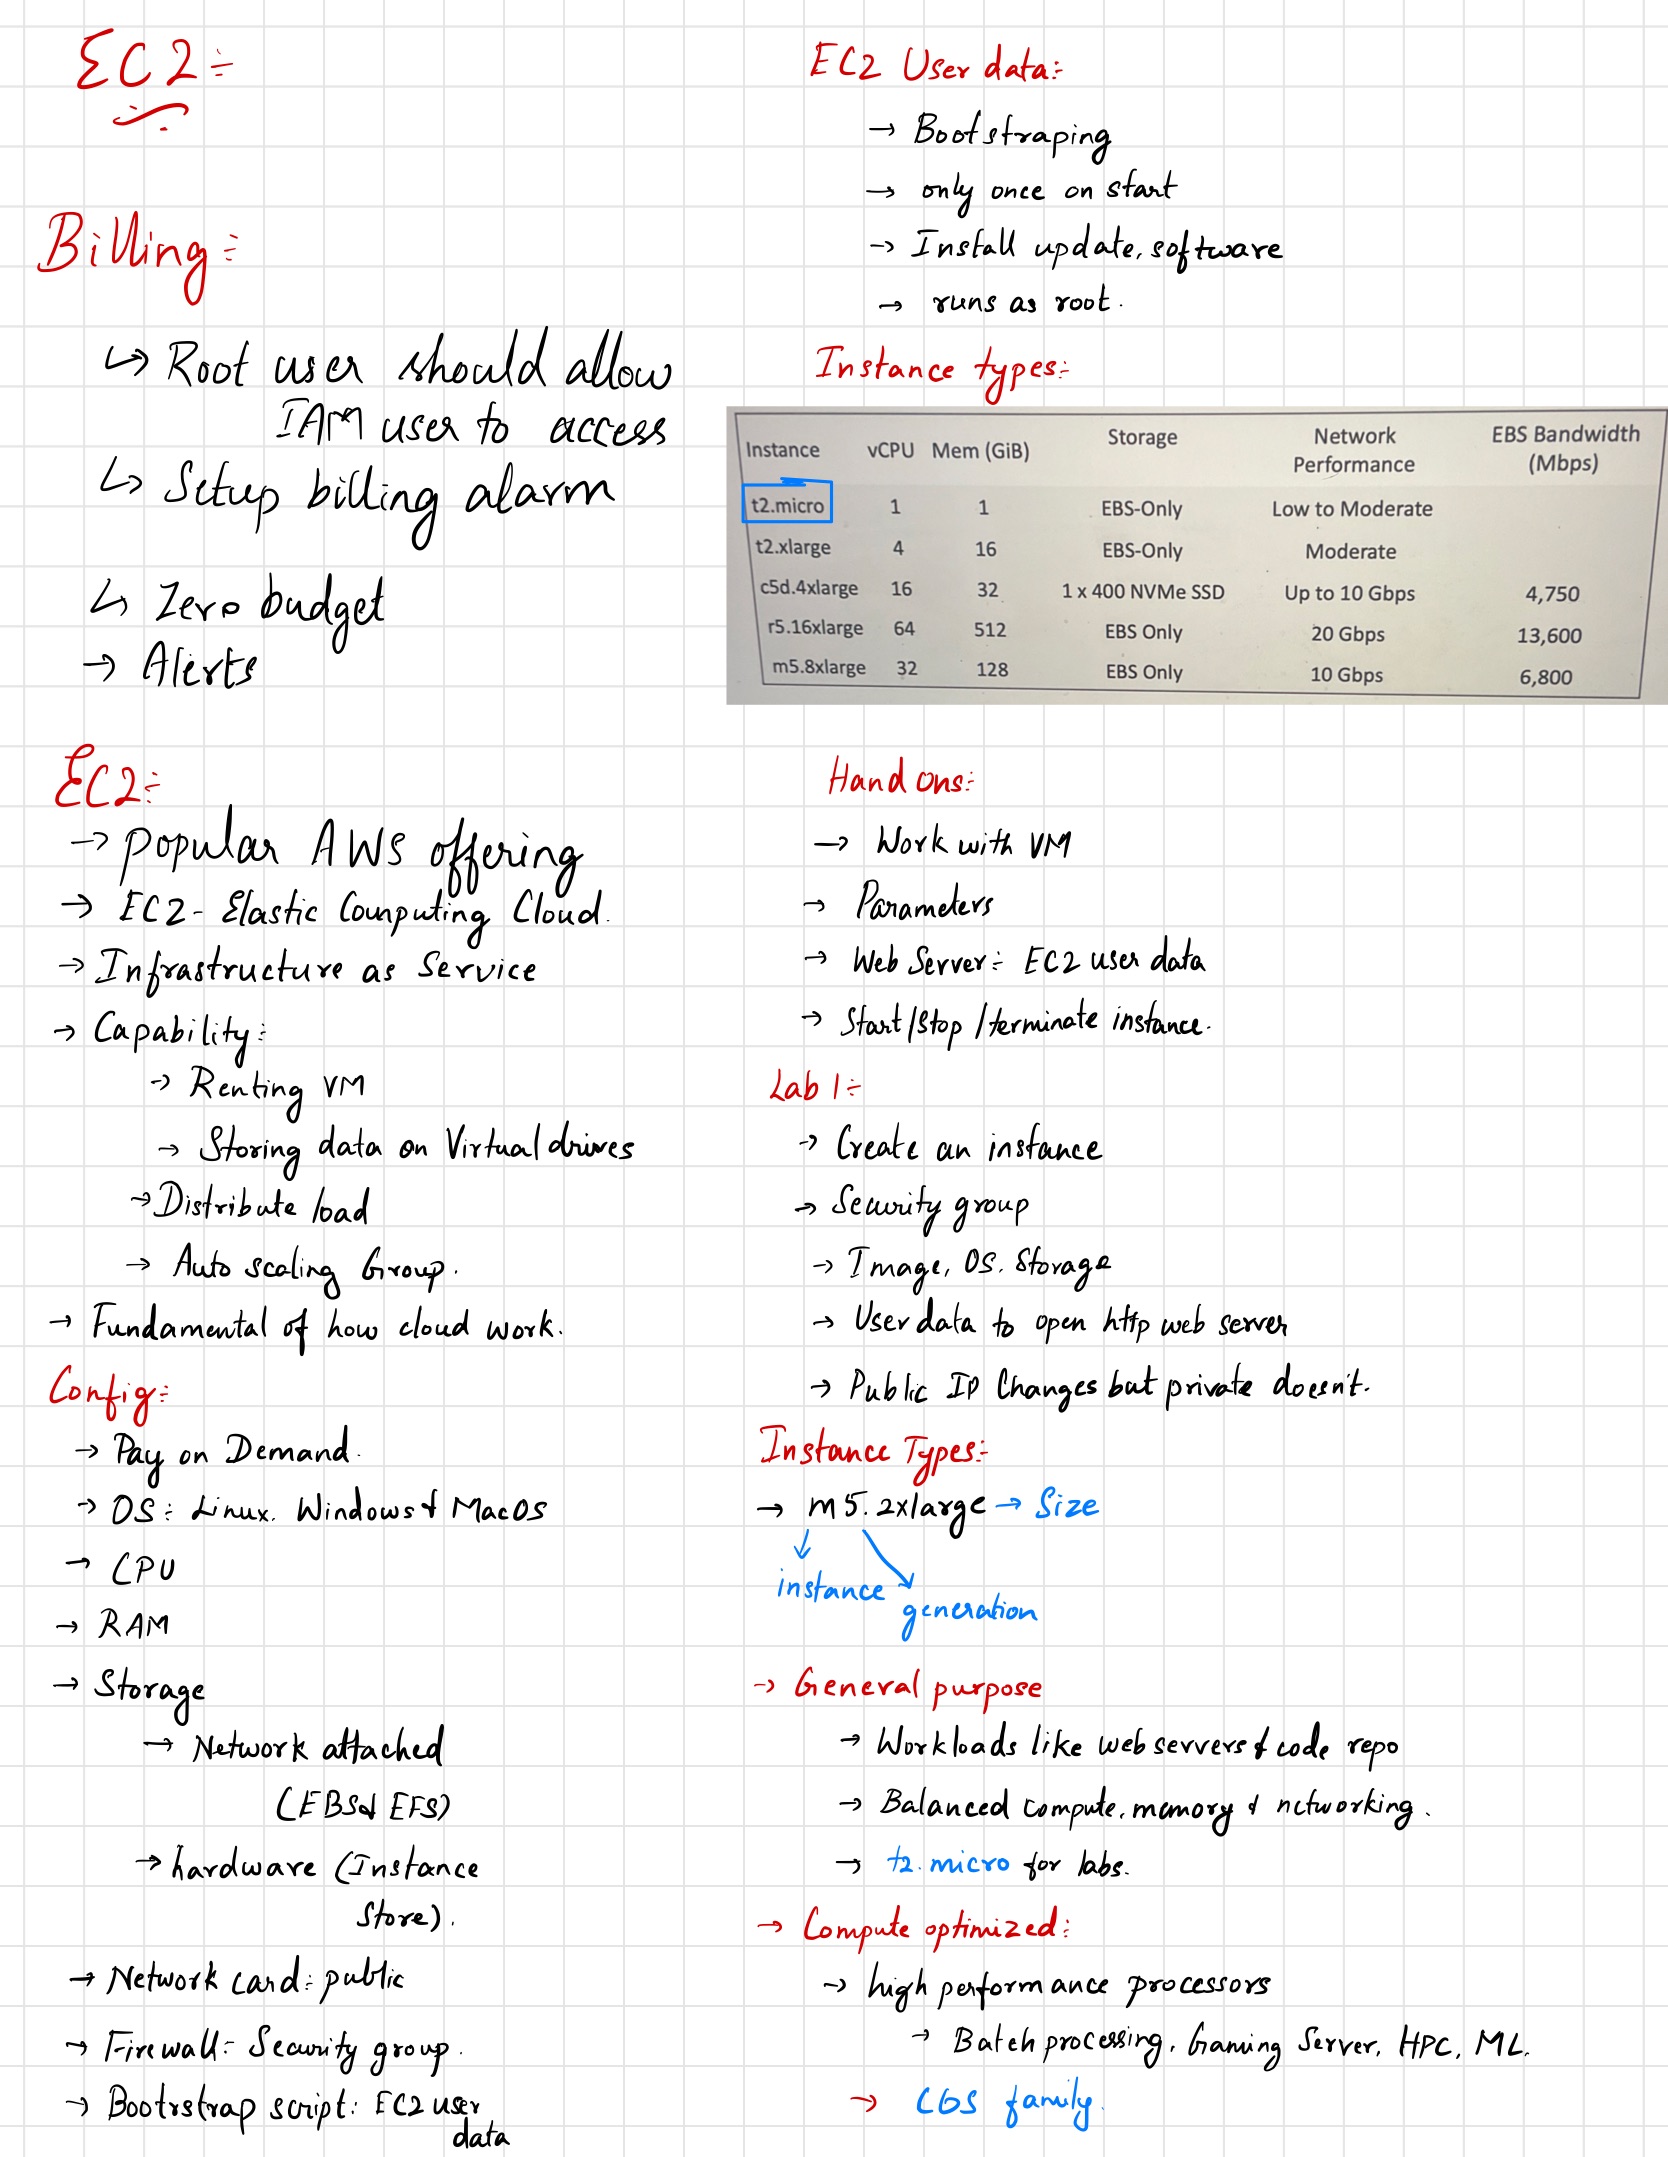 EC2:
Billing:
↳ Root user should allow
IAM user to access
↳ Setup billing alarm
↳ Zero budget
→ Alerts
EC2:
→ popular AWS offering
→ EC2 - Elastic Computing Cloud.
→ Infrastructure as Service
→ Capability:
→ Renting VM
→ Storing data on Virtual drives
→ Distribute load
→ Auto scaling Group.
→ Fundamental of how cloud work.
Config:
→ Pay on Demand.
→ OS: Linux, Windows & MacOS
→ CPU
→ RAM
→ Storage
→ Network attached
(EBS & EFS)
→ hardware (Instance
Store).
→ Network card: public
→ Firewall: Security group.
→ Bootrstrap script: EC2 user
data
EC2 User data:
→ Bootstraping
→ only once on start
→ Install update, software
→ runs as root.
Instance types:
Instance vCPU Mem (GiB) Storage Network Performance EBS Bandwidth (Mbps)
t2.micro 1 1 EBS-Only Low to Moderate
t2.xlarge 4 16 EBS-Only Moderate
c5d.4xlarge 16 32 1 x 400 NVMe SSD Up to 10 Gbps 4,750
r5.16xlarge 64 512 EBS Only 20 Gbps 13,600
m5.8xlarge 32 128 EBS Only 10 Gbps 6,800
Hand ons:
→ Work with VM
→ Parameters
→ Web Server: EC2 user data
→ Start/Stop/terminate instance.
Lab 1:
→ Create an instance
→ Security group
→ Image, OS, Storage
→ User data to open http web server
→ Public IP Changes but private doesn't.
Instance Types:
→ m5.2xlarge → Size
instance
generation
→ General purpose
→ Workloads like web servers & code repo
→ Balanced compute, memory & networking.
→ t2.micro for labs.
→ Compute optimized:
→ high performance processors
→ Batch processing, Gaming Server, HPC, ML.
→ family.